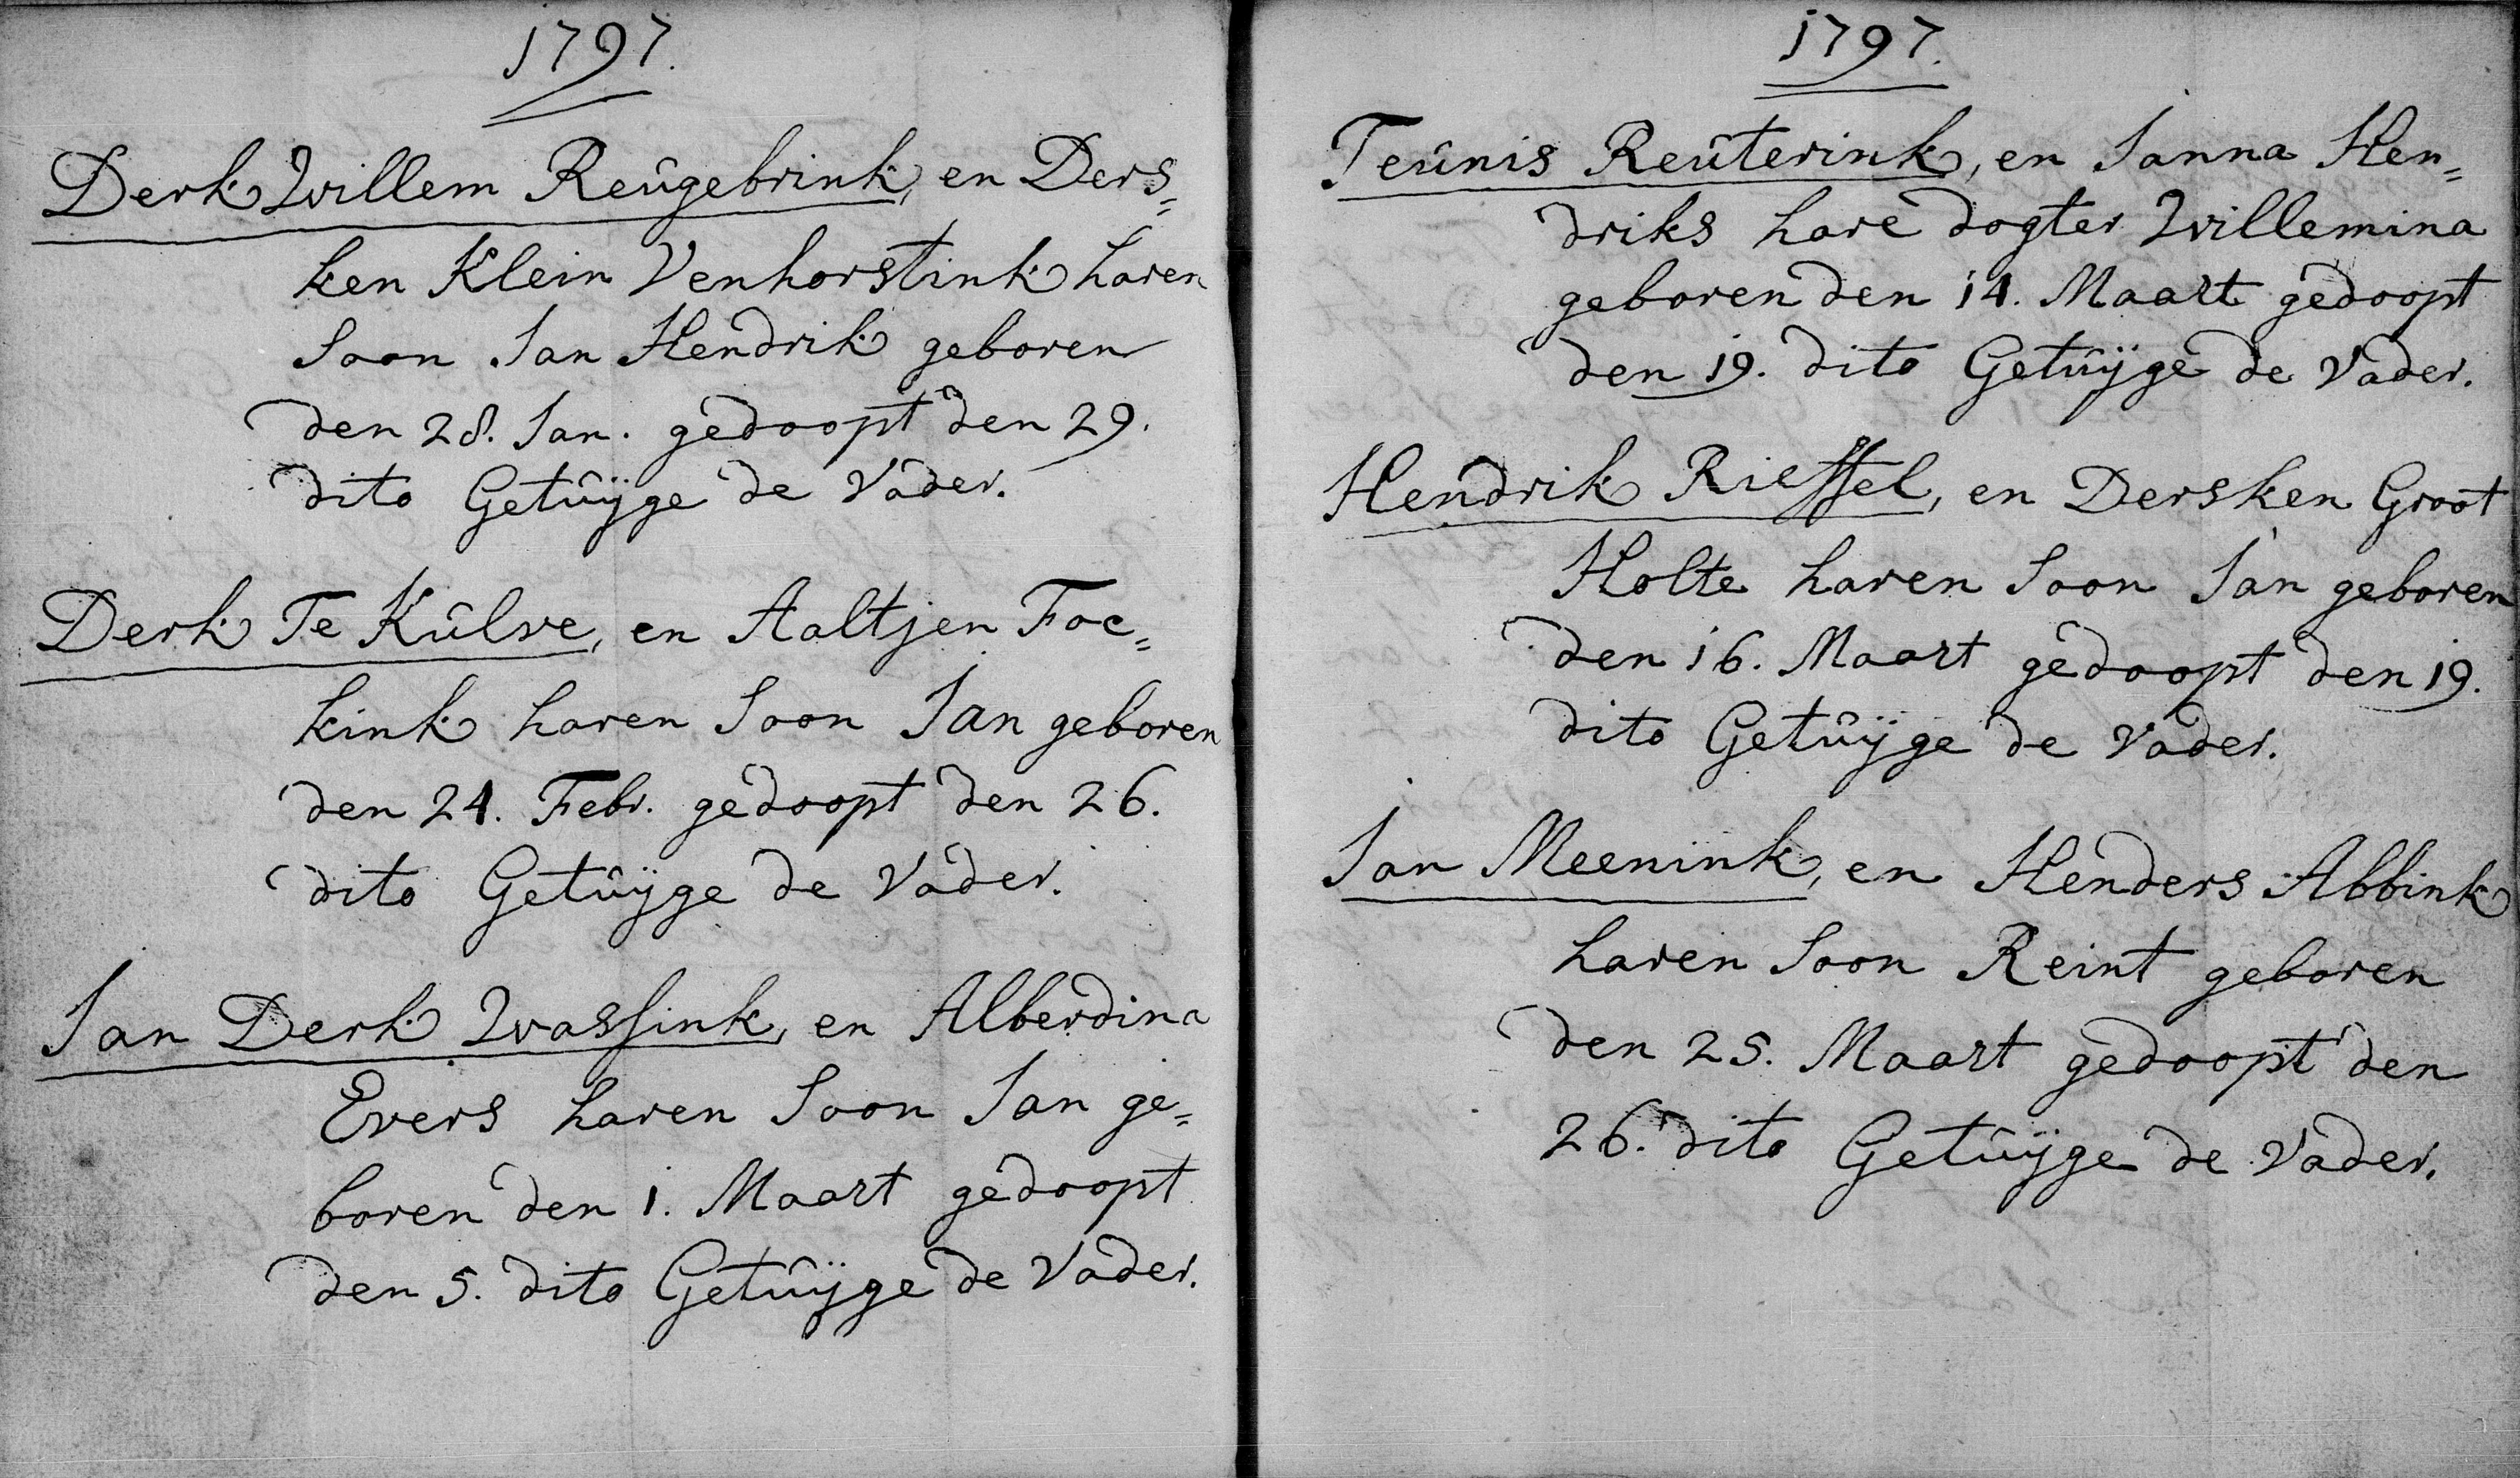 1797.
Derk Willem Reûgebrink, en Ders=
ken Klein Venhorstink haren
Soon Jan Hendrik geboren
den 28. Jan. gedoopt den 29.
dito Getûijge de Vader.
Derk Te Kûlve, en Aaltjen Foc=
kink haren Soon Jan geboren
den 24. Febr. gedoopt den 26.
dito Getûijge de Vader.
Jan Derk Wassink, en Alberdina
Evers haren Soon Jan ge=
boren den 1. Maart gedoopt
den 5. dito Getûijge de Vader.
1797.
Teûnis Reûterink, en Janna Hen=
driks hare dogter Willemina
geboren den 14. Maart gedoopt
den 19. dito Getûijge de Vader.
Hendrik Riessel, en Dersken Groot
Holte haren Soon Jan geboren
den 16. Maart gedoopt den 19.
dito Getûijge de Vader.
Jan Meenink, en Henders Abbink
haren Soon Reint geboren
den 25. Maart gedoopt den
26. dito Getûijge de Vader.